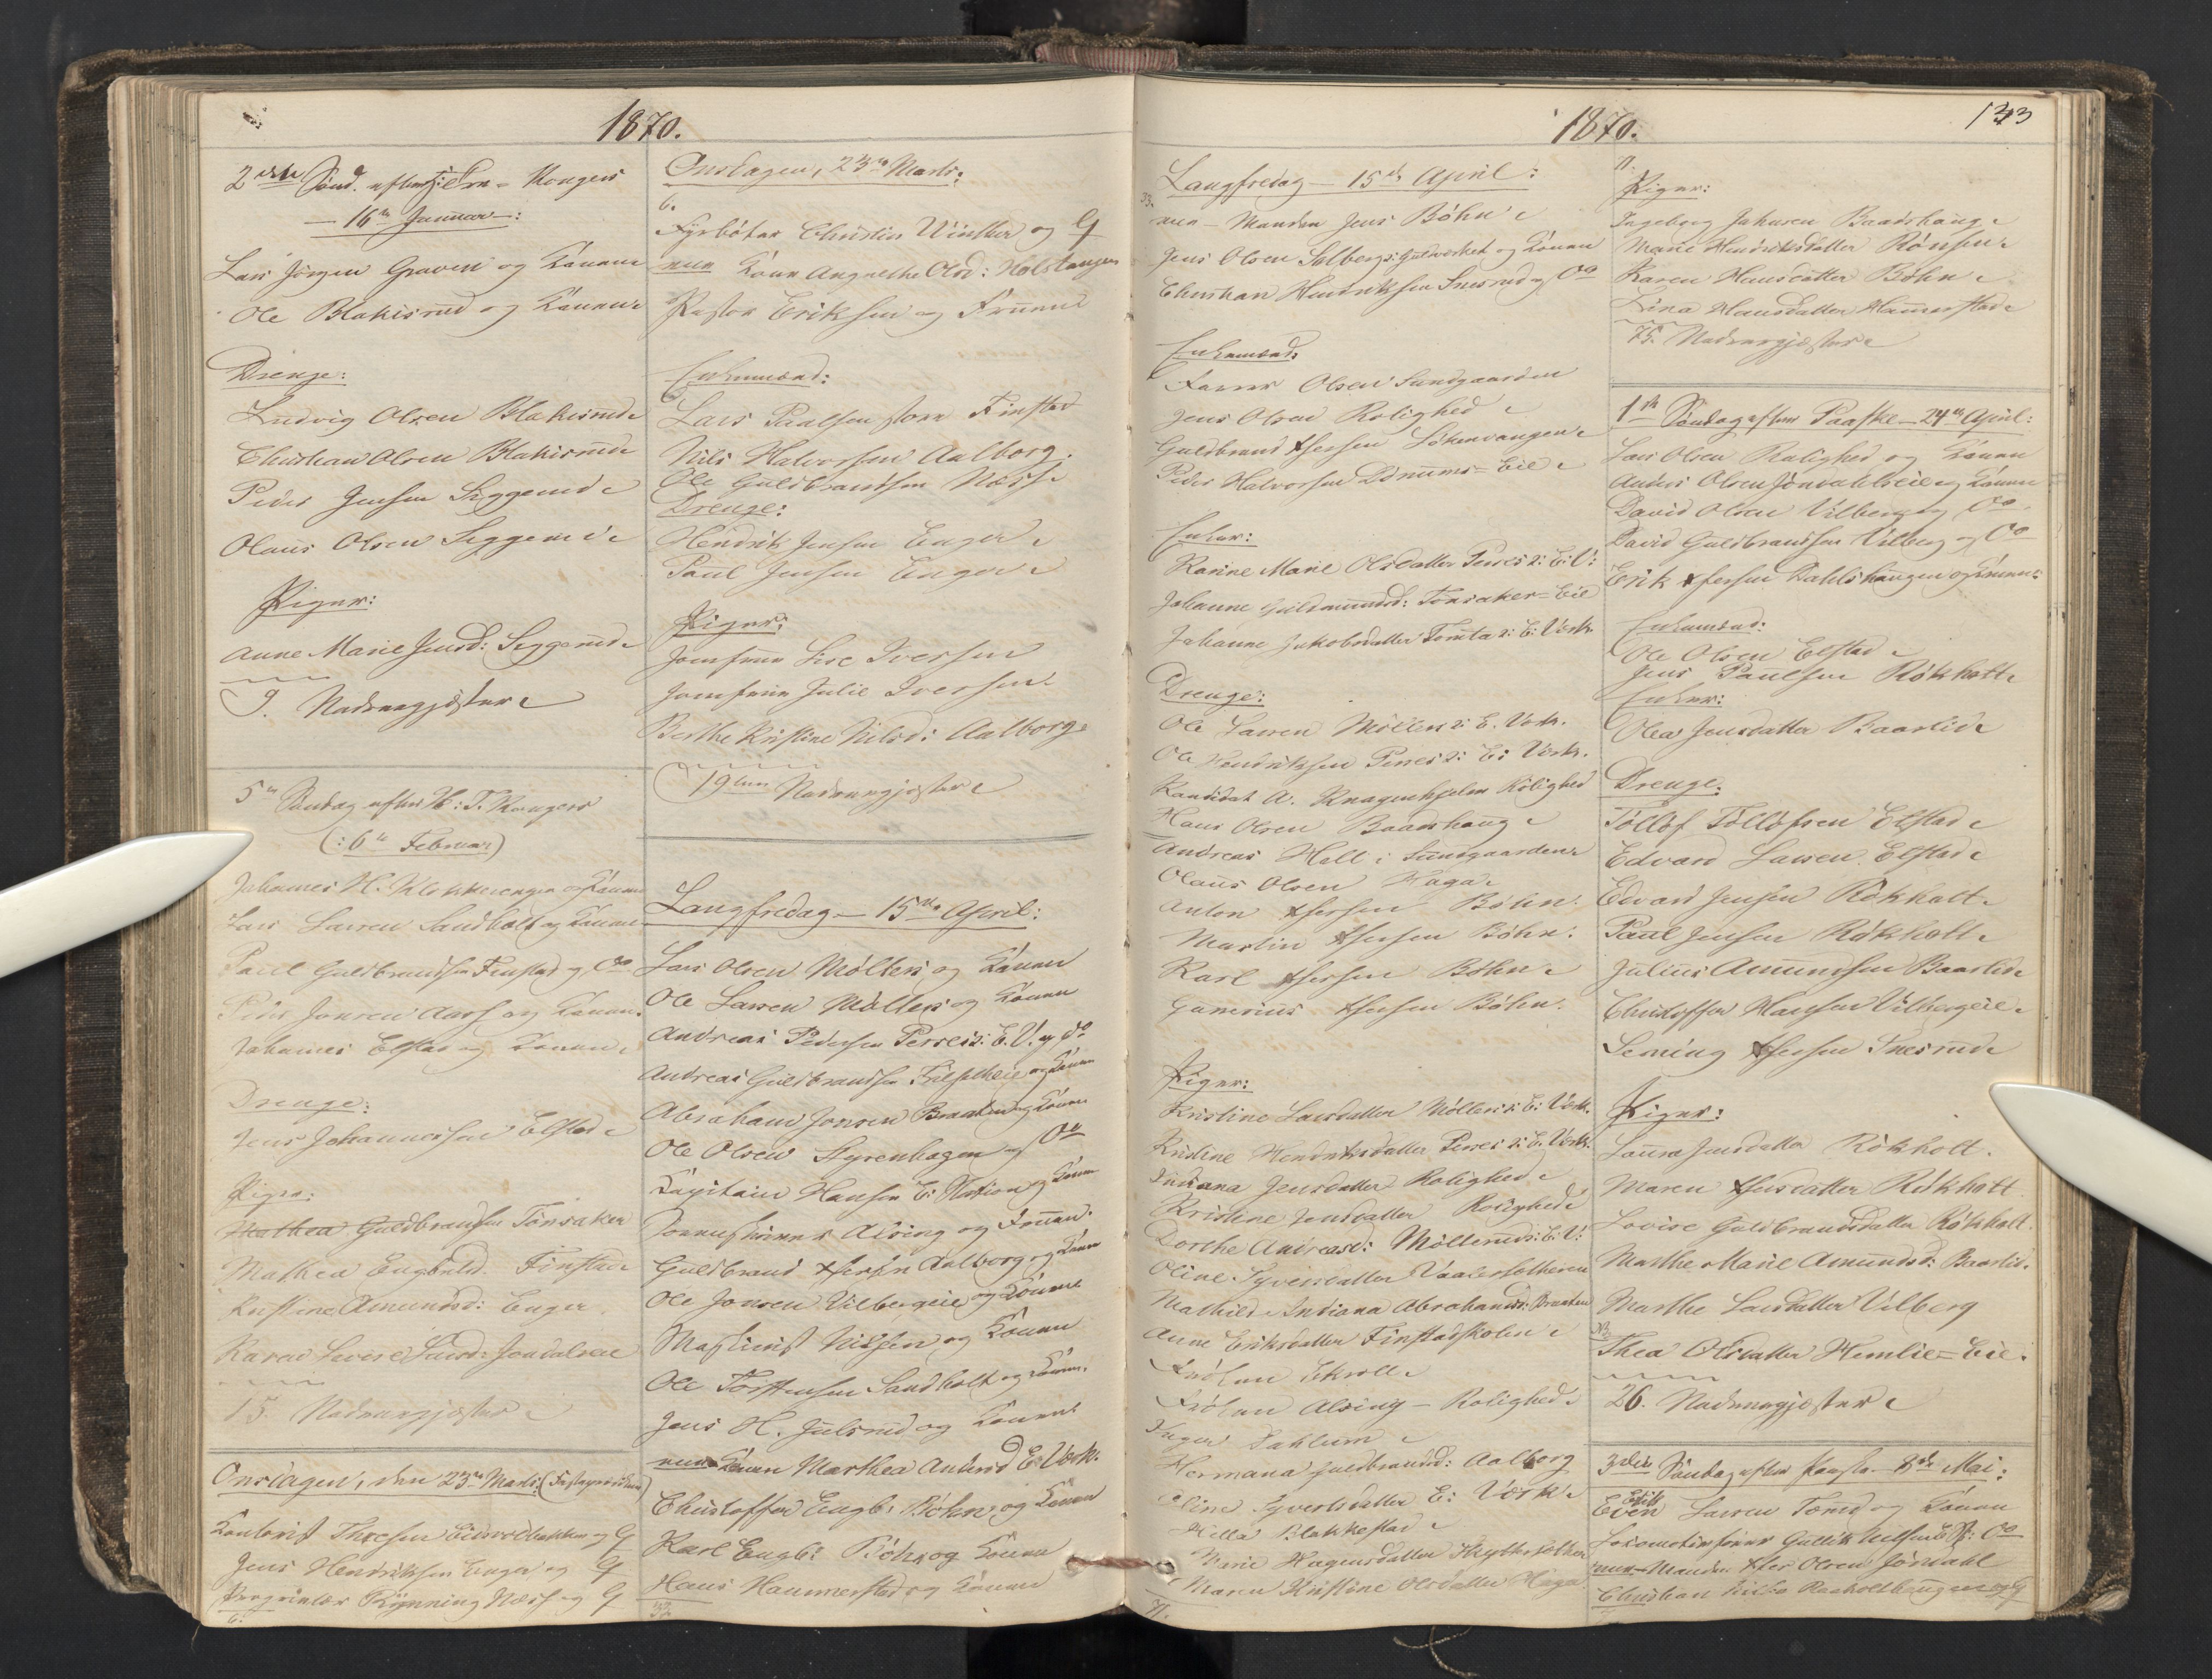 1870.
2den Sønd. efter H: Tre=Kongers
— 16de Januar —:
Lars Jörgen Graven og Konen
Ole Blakisrud og Konen
Drenge:
Ludvig Olsen Blakisrud
Christian Olsen Blakisrud
Peder Jensen Seggerud
Olaus Olsen Seggerud
Piger:
Anne Marie Jensd: Seggerud
9. Nadvergjæster
5te Søndag efter H: T: Kongers
(: 6te Februar)
Johannes H. Klokkerengen og Konen
Lars Larsen Sandholt og Konen
Paul Guldbrandsen Finstad og Do
Peder Jonsen Aass og Konen
Johannes Elstad og Konen
Drenge:
Jens Johannessen Elstad
Piger:
Mathea Guldbrandsen Tönsaker
Mathea Engbretsd. Finstad
Kristine Amundsd: Enger
Karen Lovise Larsd: Jondalseie
15. Nadvergjæster
Onsdagen, den 23de Marts:
Kontorist Thoresen Eidsvoldbakken og
Jens Hendriksen Enger og
Proprietær Rynning Næss og
6.
Onsdagen, 23de Marts:
6.
Fyrbøter Christian Winther og
nun Kone Angnethe Olsd: Holstangen
Pastor Eriksen og Fruen
Enkemænd:
Lars Paalsen store Finstad
Nils Halvorsen Aalborg.
Ole Guldbrandsen Næss
Drenge:
Hendrik Jensen Enger
Paul Jensen Enger
Piger:
Jomfrue Lise Iversen
Jomfrue Julie Iversen
Berthe Kristine Nilsd: Aalborg
19ten Nadvergjæster
Langfredag — 15de April:
Lars Olsen Möllers og Konen
Ole Larsen Möllers og Konen
Andreas Pedersen Perses: E. V. og do
Andreas Guldbrandsen og Konen
Abraham Jonsen Braaten og Konen
Ole Olsen Styrenhagen og Do
Kapitain Hansen E: Station og Konen
Alsing og Fruen.
Guldbrand Aalborg og Konen
Ole Jonsen Vilbergeie og Konen
Maskinist Nilsen og Konen
Ole Torstensen Sandholt og Konen
Jens H. Julsrud og Konen
nun Konen Marthea Andersd E: Værk.
Christoffer Engb: Böhn og Konen
Karl Engb: Böhn og Konen
Hans Hammerstad og Konen
32
1870.
133
Langfredag — 15de April:
33.
nun — Manden Jens Böhn
Jens Olsen Solberg: Guldværket og Konen
Christian Hendriksen Snesrud og Do
Enkemænd:
Larsen Olsen Sundgaarden
Jens Olsen Rolighed
Guldbrand Lökenvangen
Peder Halvorsen Dönnums=Eie
Enker:
Karine Marie Olsdatter Perses: E: V:
Johanne Guldmundsd: Tönsaker=Eie
Johanne Jakobsdatter Tomta: E: Værk
Drenge:
Ole Larsen Möllers: E. Værk.
Ole Hendriksen Perses: E: Værk.
Kandidat A. Knagenhjelm Rolighed
Hans Olsen Baadshaug
Andreas Holl: Sundgaarden
Olaus Olsen Haga
Anton Böhn.
Martin Böhn.
Karl Böhn
Gunerius Böhn.
Piger:
Kristine Larsdatter Möllers: E: Værk.
Kristine Hendriksdatter Perses: E. Værk.
Indiana Jensdatter Rolighed
Kristine Jensdatter Rolighed
Dorthe Andreasd: Möllerud: E: V:
Oline Syversdatter
Mathilde Indiana Abrahamsd: Braaten
Anne Eriksdatter Finstadskolen
Fröken Ekroll
Fröken Alsing — Rolighed
Inger Dahlum
Hermana Guldbrandsd: Aalborg
Oline Syvertsdatter E: Værk
Helle Blakkestad
Marie Hagensdatter
Maren Kristine Olsdatter Haga
71.
71.
Piger:
Ingeborg Johnsen Baadshaug
Marie Hendriksdatter Rönsen
Karen Hansdatter Böhn
Lina Hansdatter Hammerstad
75. Nadvergjæster
1ste Søndag efter Paaske — 24de April:
Lars Olsen Rolighed og Konen
Anders Olsen Jöndahlseie og Konen
David Olsen Vilberg og Do
David Guldbrandsen Vilberg og Do
Erik Dahlshaugen og Konen
Enkemænd:
Ole Olsen Elstad
Jens Paulsen Rökholt
Enker:
Olea Jensdatter Baarlid
Drenge:
Tollof Tollofsen Elstad
Edvard Larsen Elstad
Edvard Jensen Rökholt
Paul Jensen Rökholt
Julius Amundsen Baarlid
Christoffer Hansen Vilbergeie
Lening Snesrud
Piger:
Laura Jensdatter Rökholt.
Maren Rökholt
Lovise Guldbrandsdatter Rökholt.
Marthe Marie Amundsd: Baarlid.
Marthe Larsdatter Vilberg
Thea Olsdatter Hemlie=Eie.
26. Nadvergjæster
3die Søndag efter Paaske — 8de Mai:
Even Larsen Tomt og Konen
Lokomotivfører Gullik Nilsen E: St: Do
nun Manden Olsen Jöndahl
Christian Raaholtbaugen og